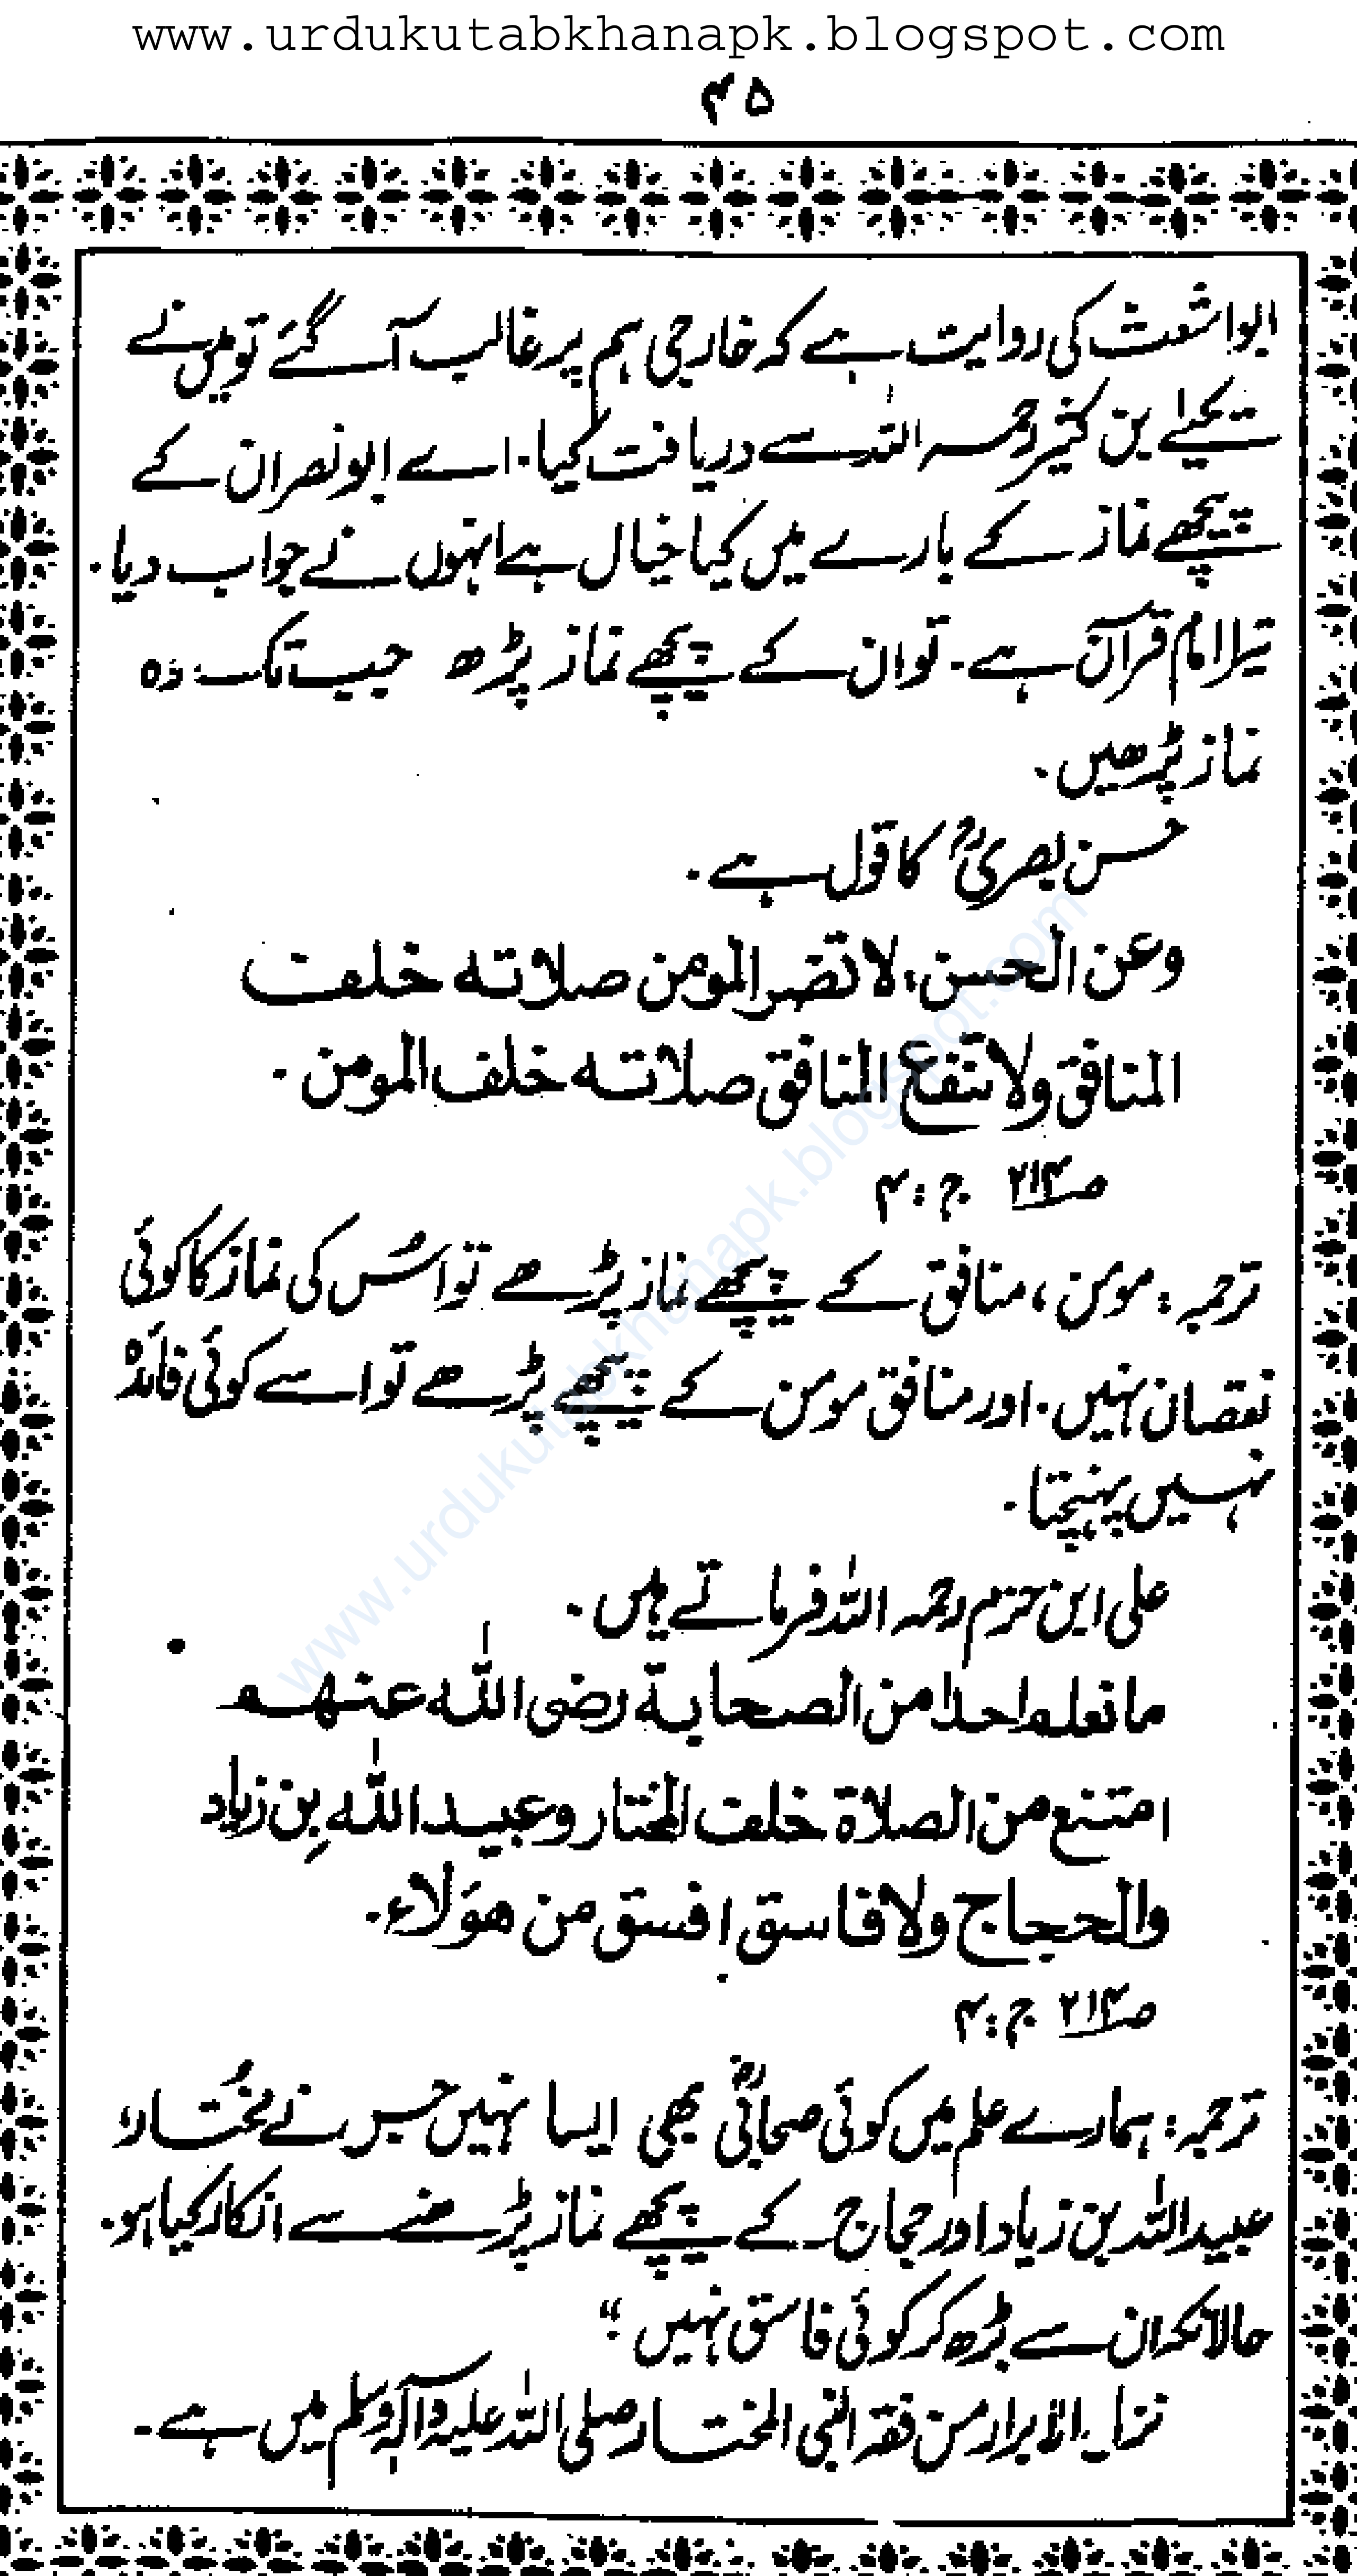 www.urdukutabkhanapk.blogspot.com
۴۵
ابواشعث کی روایت ہے کہ خارجی ہم پر غالب آ گئے تو میں نے
یحیٰے بن کثیر رحمہ اللہ سے دریافت کیا۔ اے ابو نصر ان کے
پیچھے نماز کے بارے میں کیا خیال ہے انہوں نے جواب دیا۔
تیرا امام قرآن ہے۔ تو ان کے پیچھے نماز پڑھ جب تک وہ
نماز پڑھیں۔
حسن بصریؒ کا قول ہے۔
وعن الحسن، لا تضر المومن صلاته خلف
المنافق ولا تنفع المنافق صلاته خلف المومن۔
ص۲۱۴ ج:۴
ترجمہ: مومن، منافق کے پیچھے نماز پڑھے تو اسُ کی نماز کا کوئی
نقصان نہیں۔ اور منافق مومن کے پیچھے پڑھے تو اسے کوئی فائدہ
نہیں پہنچتا۔
علی ابن حزم رحمہ اللہ فرماتے ہیں۔
ما نعلم احدا من الصحابة رضی اللہ عنہم
امتنع من الصلاة خلف المختار وعبید اللہ بِن زیاد
والحجاج ولا فاسق افسق من ھؤلاء۔
ص۲۱۴ ج:۴
ترجمہ: ہمارے علم میں کوئی صحابیؓ بھی ایسا نہیں جس نے مُختار،
عبید اللہ بن زیاد اور حجاج کے پیچھے نماز پڑھنے سے انکار کیا ہو۔
حالانکہ ان سے بڑھ کر کوئی فاسق نہیں؛“
نزل الابرار من فقہ النبی المختار صلی اللہ علیہ وآلہ وسلم میں ہے۔
www.urdukutabkhanapk.blogspot.com